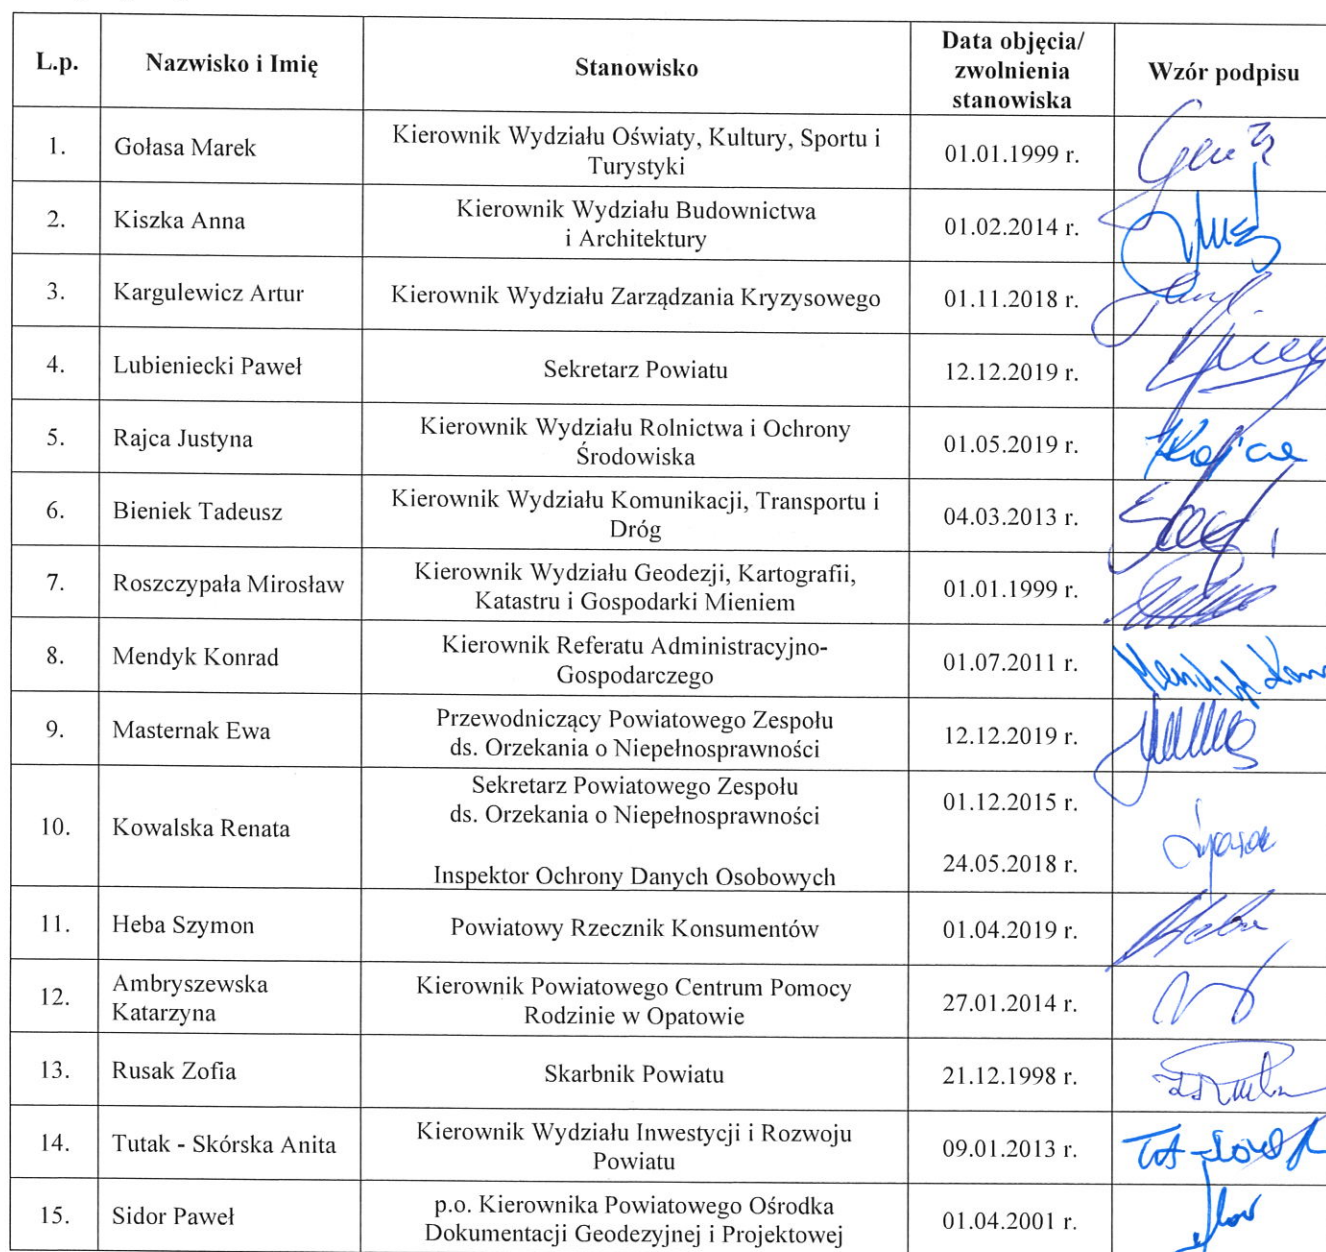 L.p.
Nazwisko i Imię
Stanowisko
Data objęcia/
zwolnienia
stanowiska
Wzór podpisu
1.
Gołasa Marek
Kierownik Wydziału Oświaty, Kultury, Sportu i
Turystyki
01.01.1999 r.
2.
Kiszka Anna
Kierownik Wydziału Budownictwa
i Architektury
01.02.2014 r.
3.
Kargulewicz Artur
Kierownik Wydziału Zarządzania Kryzysowego
01.11.2018 r.
4.
Lubieniecki Paweł
Sekretarz Powiatu
12.12.2019 r.
5.
Rajca Justyna
Kierownik Wydziału Rolnictwa i Ochrony
Środowiska
01.05.2019 r.
6.
Bieniek Tadeusz
Kierownik Wydziału Komunikacji, Transportu i
Dróg
04.03.2013 r.
7.
Roszczypała Mirosław
Kierownik Wydziału Geodezji, Kartografii,
Katastru i Gospodarki Mieniem
01.01.1999 r.
8.
Mendyk Konrad
Kierownik Referatu Administracyjno-
Gospodarczego
01.07.2011 r.
9.
Masternak Ewa
Przewodniczący Powiatowego Zespołu
ds. Orzekania o Niepełnosprawności
12.12.2019 r.
10.
Kowalska Renata
Sekretarz Powiatowego Zespołu
ds. Orzekania o Niepełnosprawności
01.12.2015 r.
Inspektor Ochrony Danych Osobowych
24.05.2018 r.
11.
Heba Szymon
Powiatowy Rzecznik Konsumentów
01.04.2019 r.
12.
Ambryszewska
Katarzyna
Kierownik Powiatowego Centrum Pomocy
Rodzinie w Opatowie
27.01.2014 r.
13.
Rusak Zofia
Skarbnik Powiatu
21.12.1998 r.
14.
Tutak - Skórska Anita
Kierownik Wydziału Inwestycji i Rozwoju
Powiatu
09.01.2013 r.
15.
Sidor Paweł
p.o. Kierownika Powiatowego Ośrodka
Dokumentacji Geodezyjnej i Projektowej
01.04.2001 r.